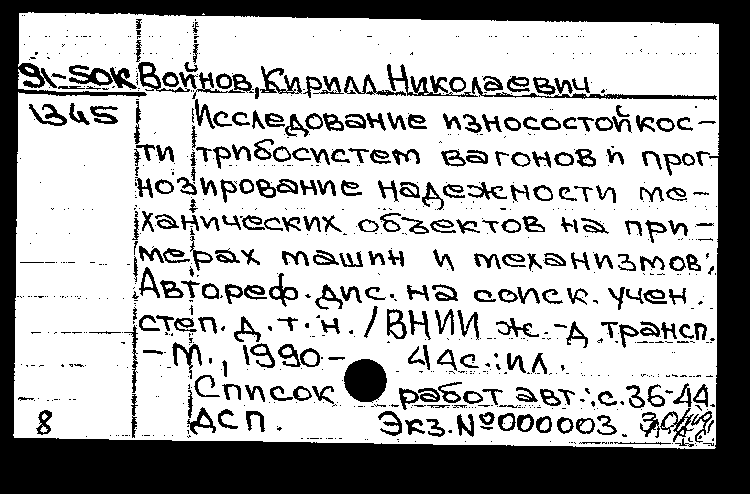 91-SOK Войнов, Кирилл Николаевич.
1345 Исследование износостойкос-
ти трибосистем вагонов и прог-
нозирование надежности ме-
ханических объектов на при-
мерах машин и механизмов:
Автореф. дис. на соиск. учен.
степ. д.т.н. /ВНИИ ж.-д трансп.
- М., 1990 - 44с.:ил.
Список работ авт.: с.36-44.
8 ДСП. Экз.№000003.